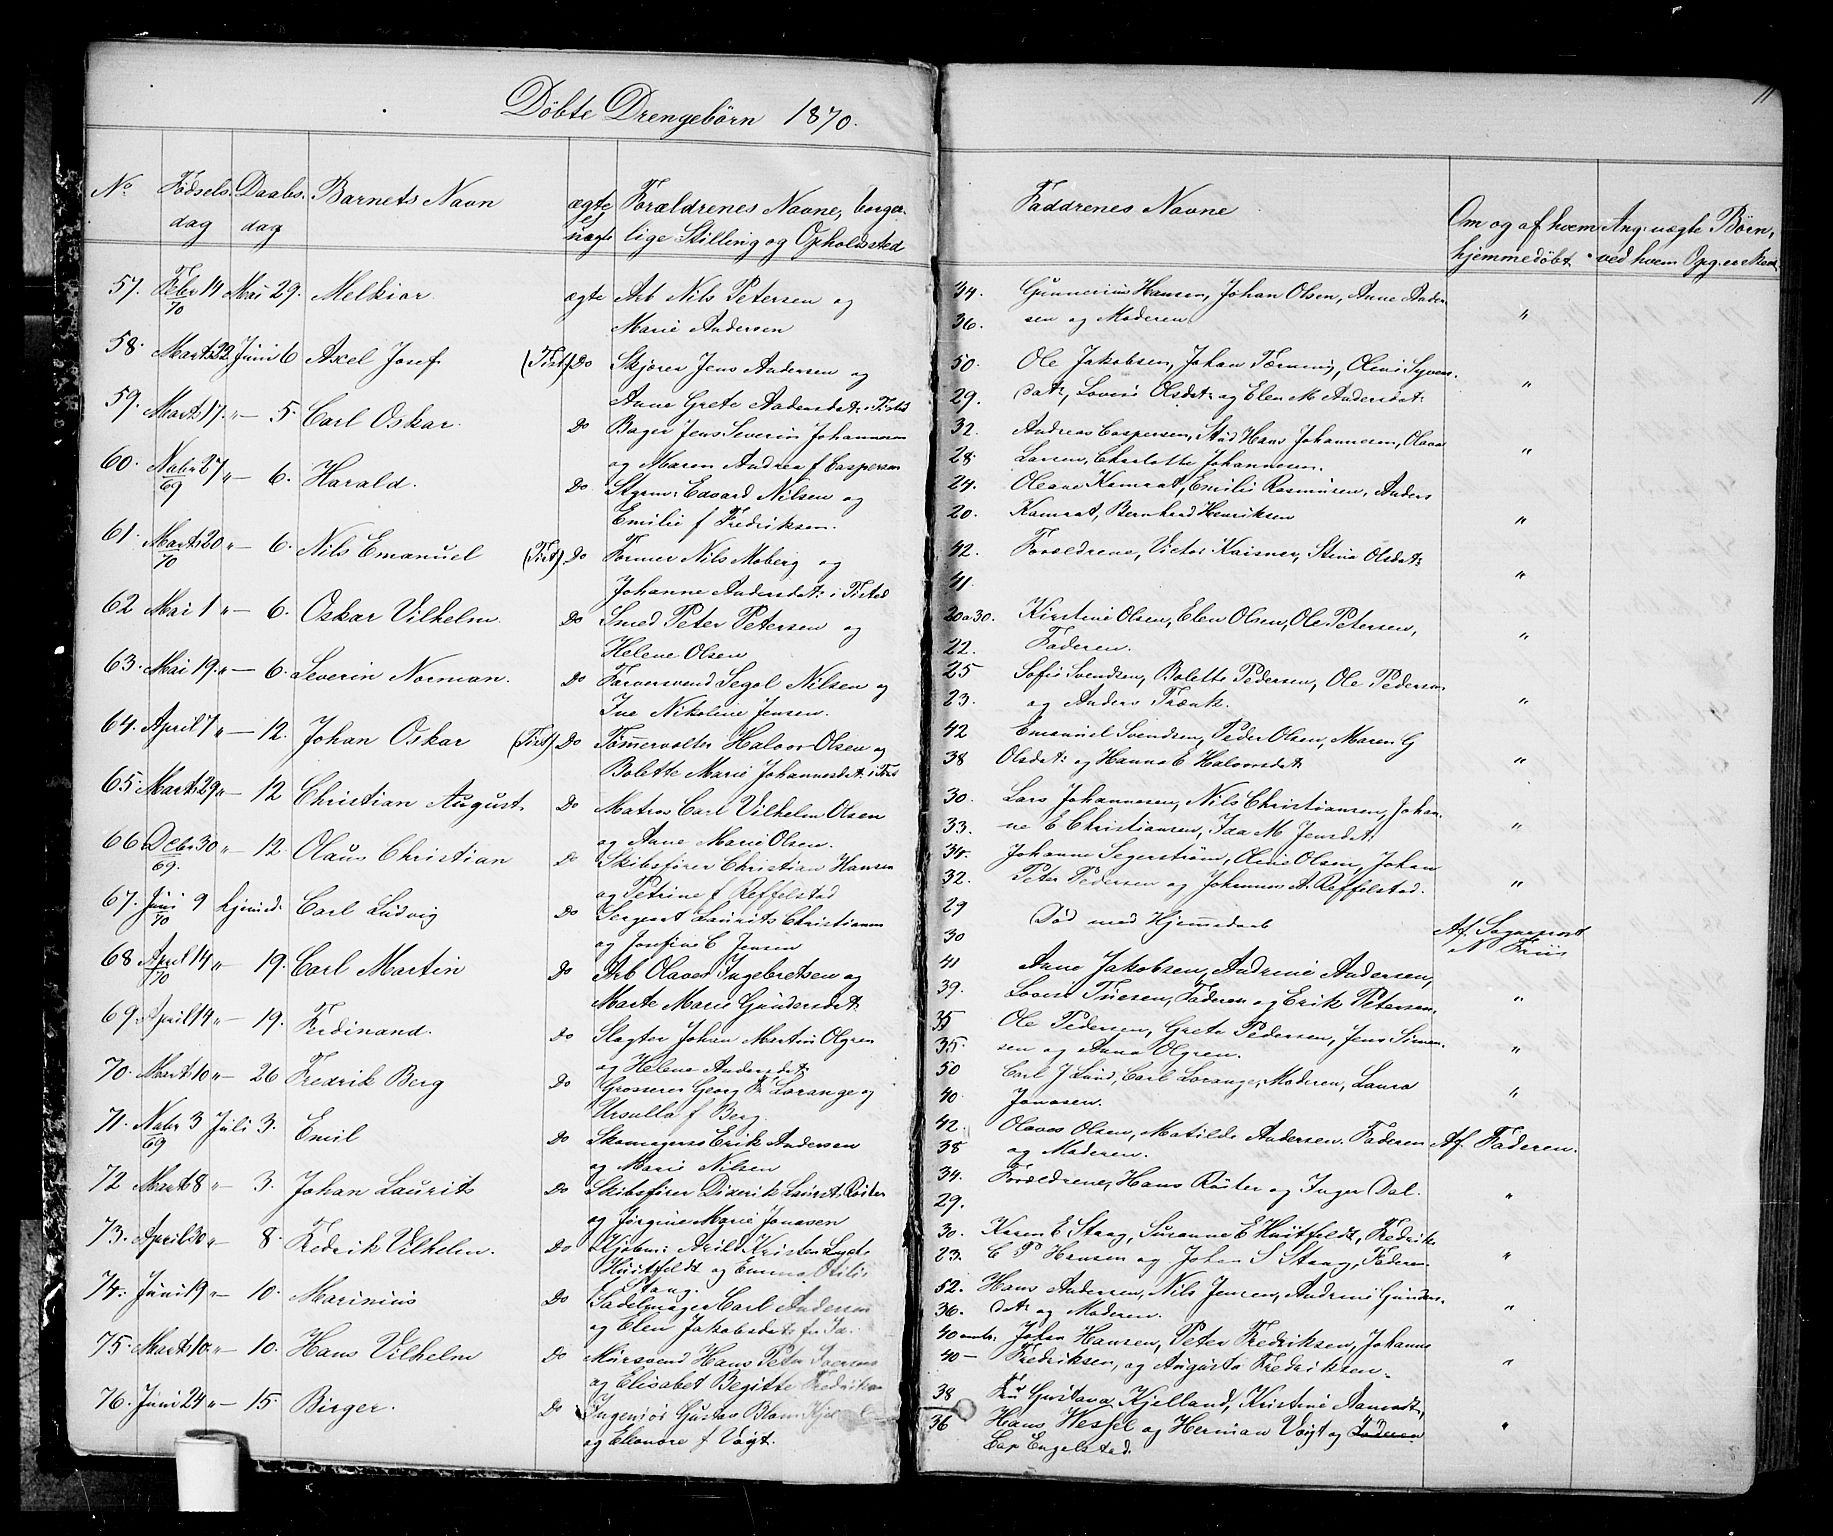 Döbte Drengebörn 1870.
11
No Födsels- Daabs- Barnets Navn ægte Forældrenes Navne, borger- Faddrenes Navne Om og af hvem Ang. uægte Børn,
dag dag el uægte lige Stilling og Opholdssted hjemmedöbt ved hvem Opg. er
57. Febr 14 Mai 29. Melkior ægte Arb Nils Petersen og 34. Gunnerius Hansen, Johan Olsen, Anne Ander-
70 Marie Andersen 36. sen og Moderen. "
58. Marts 22 Juni 6 Axel Josef. (Tist) Do Skjörer Jens Andersen og 50. Ole Jakobsen, Johan
Anne Grete Andersdat: i Tisted 29. dat:, Lovise Olsdat: og Elen M. Andersdat: "
59. Marts 17. " — 5. Carl Oskar. Do Bager Jens Severin Johannesen 32. Andreas Caspersen, Hans Johannesen, Olava
og Maren Andrea f Caspersen 28. Larsen, Charlotte Johannesen. "
60. Nobr 27 " — 6. Harald. Do Styrm: Edvard Nilsen og 24. Oleane Kamraat, Emilie Rasmusen, Anders
69 Emilie f Fredriksen. 20. Kamraat, Bernhard Henriksen "
61. Marts 20 " — 6. Nils Emanuel (Tist). Do Former Nils Moberg og 42. Forældrene, Victor Kaisner, Stina Olsdat:
70 Johanne Andersdat: i Tisted 41. "
62 Mai 1 " — 6. Oskar Vilhelm. Do Smed Peter Petersen og 20 a 30. Kirstine Olsen, Elen Olsen, Ole Petersen,
Helene Olsen 22. Faderen. "
63. Mai 19. " — 6. Severin Norman. Do Farversvend Segol Nilsen og 25 Sofie Svendsen, Bolette Pedersen, Ole Pedersen
Ine Nikoline Jensen. 23. og Anders Frænk. "
64. April 7 " — 12. Johan Oskar (Tist) Do Tömervolter Halvor Olsen og 42 Emanuel Svendsen, Peder Olsen, Maren G
Bolette Marie Johannesdat: i Tist 38 Olsdat: og Hanna E Halvorsdat: "
65. Marts 29 " — 12 Christian August. Do Matros Carl Vilhelm Olsen 30. Lars Johannesen, Nils Christiansen, Johan-
og Anne Marie Olsen. 33. ne E Christiansen, Ida M Jensdat. "
66 Decbr 30 " — 12. Olaus Christian Do Skibsförer Christian Hansen 34. Johanne Segerström, Oline Olsen, Johan
69. og Petrine f Reffelstad 32. Peter Pedersen og Johannes A. Reffelstad. "
67. Juni 9 hjemmed. Carl Ludvig Do Sergeant Laurits Christiansen 29 Död med Hjemmedaab Af. Sognepræst
70 og Josefine C Jensen 30 N. Friis
68 April 14 " — 19. Carl Martin Do Arb Olaves Ingebretsen og 41 Anne Jakobsen, Andrine Andersen,
70 Marte Marie Gundersdat: 39. Lovise Tuesen, Faderen og Erik Petersen. "
69. April 19 " — 19. Ferdinand. Do Slagter Johan Martin Olgren 35 Ole Pedersen, Grete Pedersen, Jens Simon-
og Helene Andersdat: 35. sen og Anna Olgren. "
70. Marts 10 " — 26 Fredrik Berg Do Grosserer Georg Fr Lorange og 50 Carl J Lund, Carl Lorange, Moderen, Laura
Ursulla f Berg. 40. Jonasen. "
71. Nobr 3 Juli 3. Emil Do Skomagersv Erik Andersen 42. Olaves Olsen, Matilde Andersen. Faderen Af. Faderen.
69 og Marie Nilsen 38 og Moderen.
72 Marts 8 " — 3. Johan Laurits Do Skibsförer Diderik Laurit. Röster 34. Forældrene, Hans Röster og Inger Dal.
og Jörgine Marie Jonasen 29. "
73. April 30 " — 8. Fredrik Vilhelm. Do Kjöbm: Arild Kristen 30. Karen E Stang, Susanne E Huitfeldt, Fredrik
Huitfeldt og Emma Otilie 23. C P Hansen og Johan S Stang, Faderen. "
f Stang.
74. Juni 19 " — 10. Marinius Do Sadelmager Carl Andersen 52. Hans Andersen, Nils Jensen, Andrine Gunders-
og Elen Jakobsdat: fr Id. 36. dat: og Moderen. "
75. Marts 10. " — 10. Hans Vilhelm Do Mursvend Hans Peter 40 omtr. Johan Hansen, Peter Fredriksen, Johanne
og Elisabet Begitte Fredriksen 40 — Fredriksen, og Augusta Fredriksen. "
76. Juni 24 " — 15. Birger. Do Ingeniör Gustav Blom 38 Fru Gustava Kjelland, Kristine Aamodt,
og Elleonore f Vogt. 36 Hans Wessel og Herman Vogt og Faderen "
Cap Engelstad.